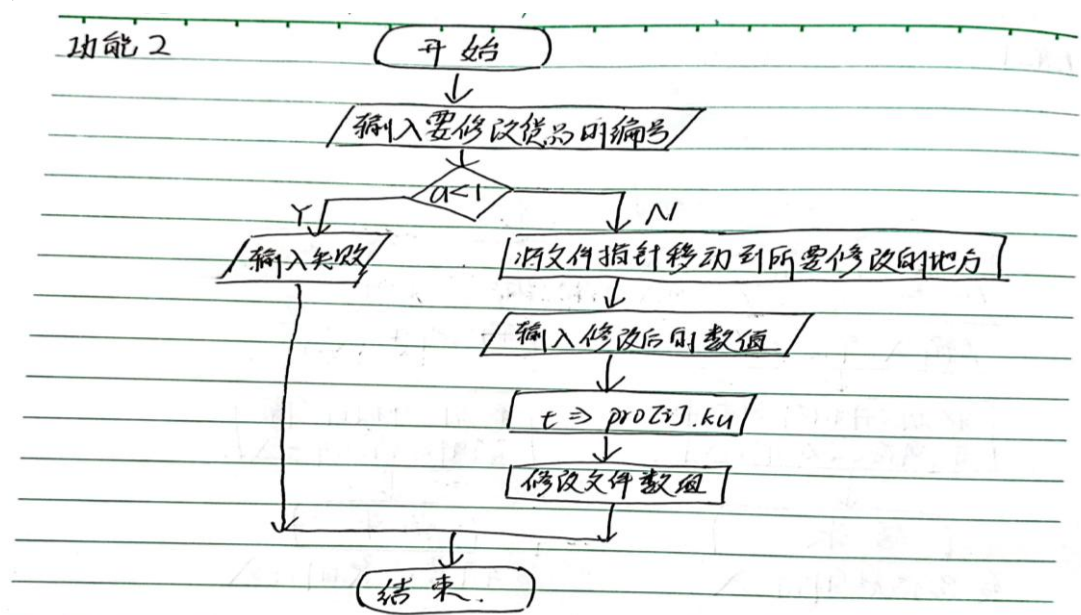 功能2
开始
输入要修改货品的编号
a<1
Y
N
输入失败
将文件指针移动到所要修改的地方
输入修改后的数值
t⇒pro[i].ku
修改文件数组
结束.